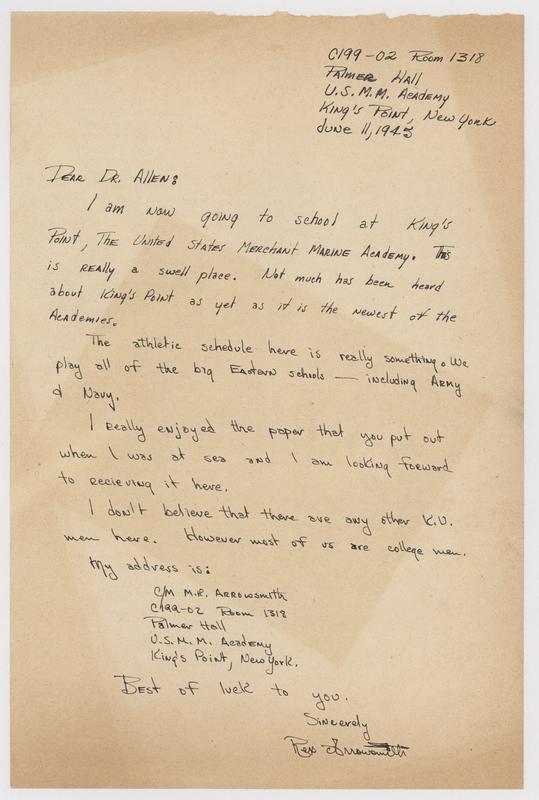 C199-02 Room 1318
Palmer Hall
U.S.M.M. Academy
King's Point, New York
June 11, 1945
Dear Dr. Allen:
I am now going to school at King's
Point, The United States Merchant Marine Academy. This
is really a swell place. Not much has been heard
about King's Point as yet as it is the newest of the
Academies.
The athletic schedule here is really something. We
play all of the big Eastern schools — including Army
& Navy.
I really enjoyed the paper that you put out
when I was at sea and I am looking forward
to recieving it here.
I don't believe that there are any other K.U.
men here. However most of us are college men.
My address is:
C/M M.R. Arrowsmith
C199-02 Room 1318
Palmer Hall
U.S.M.M. Academy
King's Point, New York.
Best of luck to you.
Sincerely
Rex Arrowsmith